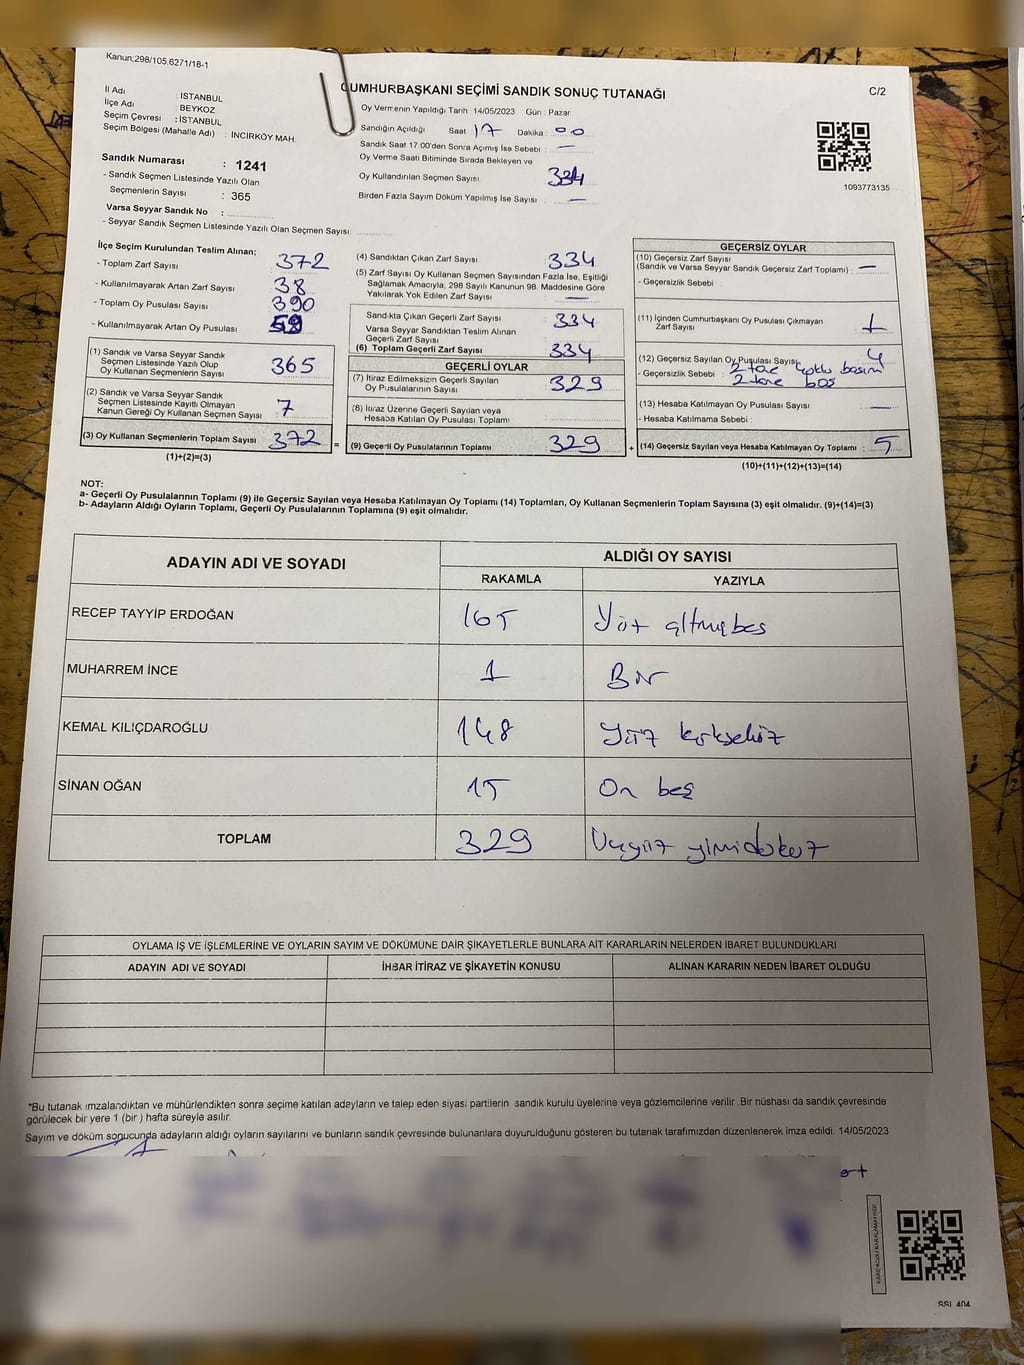 Kanun;298/105,6271/18-1
CUMHURBAŞKANI SEÇİMİ SANDIK SONUÇ TUTANAĞI
C/2
İl Adı : İSTANBUL
İlçe Adı : BEYKOZ
Seçim Çevresi : İSTANBUL
Seçim Bölgesi (Mahalle Adı) : İNCİRKÖY MAH.
Oy Vermenin Yapıldığı Tarih 14/05/2023 Gün : Pazar
Sandığın Açıldığı Saat 17 Dakika : 00
Sandık Saat 17:00'den Sonra Açımış İse Sebebi : —
Oy Verme Saati Bitiminde Sırada Bekleyen ve
Oy Kullandırılan Seçmen Sayısı 334
Birden Fazla Sayım Döküm Yapılmış İse Sayısı : —
1093773135
Sandık Numarası : 1241
- Sandık Seçmen Listesinde Yazılı Olan
Seçmenlerin Sayısı : 365
Varsa Seyyar Sandık No :
- Seyyar Sandık Seçmen Listesinde Yazılı Olan Seçmen Sayısı:
İlçe Seçim Kurulundan Teslim Alınan;
- Toplam Zarf Sayısı 372
- Kullanılmayarak Artan Zarf Sayısı 38
- Toplam Oy Pusulası Sayısı 390
- Kullanılmayarak Artan Oy Pusulası
(1) Sandık ve Varsa Seyyar Sandık
Seçmen Listesinde Yazılı Olup
Oy Kullanan Seçmenlerin Sayısı 365
(2) Sandık ve Varsa Seyyar Sandık
Seçmen Listesinde Kayıtlı Olmayan
Kanun Gereği Oy Kullanan Seçmen Sayısı 7
(3) Oy Kullanan Seçmenlerin Toplam Sayısı 372 =
(1)+(2)=(3)
(4) Sandıktan Çıkan Zarf Sayısı 334
(5) Zarf Sayısı Oy Kullanan Seçmen Sayısından Fazla İse, Eşitliği
Sağlamak Amacıyla, 298 Sayılı Kanunun 98. Maddesine Göre
Yakılarak Yok Edilen Zarf Sayısı —
Sandıkta Çıkan Geçerli Zarf Sayısı 334
Varsa Seyyar Sandıktan Teslim Alınan
Geçerli Zarf Sayısı
(6) Toplam Geçerli Zarf Sayısı 334
GEÇERLİ OYLAR
(7) İtiraz Edilmeksizin Geçerli Sayılan
Oy Pusulalarının Sayısı 329
(8) İtiraz Üzerine Geçerli Sayılan veya
Hesaba Katılan Oy Pusulası Toplamı
(9) Geçerli Oy Pusulalarının Toplamı 329 +
GEÇERSİZ OYLAR
(10) Geçersiz Zarf Sayısı
(Sandık ve Varsa Seyyar Sandık Geçersiz Zarf Toplamı) : —
- Geçersizlik Sebebi :
(11) İçinden Cumhurbaşkanı Oy Pusulası Çıkmayan
Zarf Sayısı 1
(12) Geçersiz Sayılan Oy Pusulası Sayısı 4
- Geçersizlik Sebebi : 2 tane basım
2 tane boş
(13) Hesaba Katılmayan Oy Pusulası Sayısı —
- Hesaba Katılmama Sebebi :
(14) Geçersiz Sayılan veya Hesaba Katılmayan Oy Toplamı : 5
(10)+(11)+(12)+(13)=(14)
NOT:
a- Geçerli Oy Pusulalarının Toplamı (9) ile Geçersiz Sayılan veya Hesaba Katılmayan Oy Toplamı (14) Toplamları, Oy Kullanan Seçmenlerin Toplam Sayısına (3) eşit olmalıdır. (9)+(14)=(3)
b- Adayların Aldığı Oyların Toplamı, Geçerli Oy Pusulalarının Toplamına (9) eşit olmalıdır.
ADAYIN ADI VE SOYADI
ALDIĞI OY SAYISI
RAKAMLA YAZIYLA
RECEP TAYYİP ERDOĞAN 165 Yüz altmışbeş
MUHARREM İNCE 1 Bir
KEMAL KILIÇDAROĞLU 148 Yüz kırksekiz
SİNAN OĞAN 15 On beş
TOPLAM 329 Üçyüz yirmidokuz
OYLAMA İŞ VE İŞLEMLERİNE VE OYLARIN SAYIM VE DÖKÜMÜNE DAİR ŞİKAYETLERLE BUNLARA AİT KARARLARIN NELERDEN İBARET BULUNDUKLARI
ADAYIN ADI VE SOYADI İHBAR İTİRAZ VE ŞİKAYETİN KONUSU ALINAN KARARIN NEDEN İBARET OLDUĞU
*Bu tutanak imzalandıktan ve mühürlendikten sonra seçime katılan adayların ve talep eden siyasi partilerin sandık kurulu üyelerine veya gözlemcilerine verilir .Bir nüshası da sandık çevresinde
görülecek bir yere 1 (bir ) hafta süreyle asılır.
Sayım ve döküm sonucunda adayların aldığı oyların sayılarını ve bunların sandık çevresinde bulunanlara duyurulduğunu gösteren bu tutanak tarafımızdan düzenlenerek imza edildi. 14/05/2023
KAREKODU KARALAMAYINIZ!
SSI 404